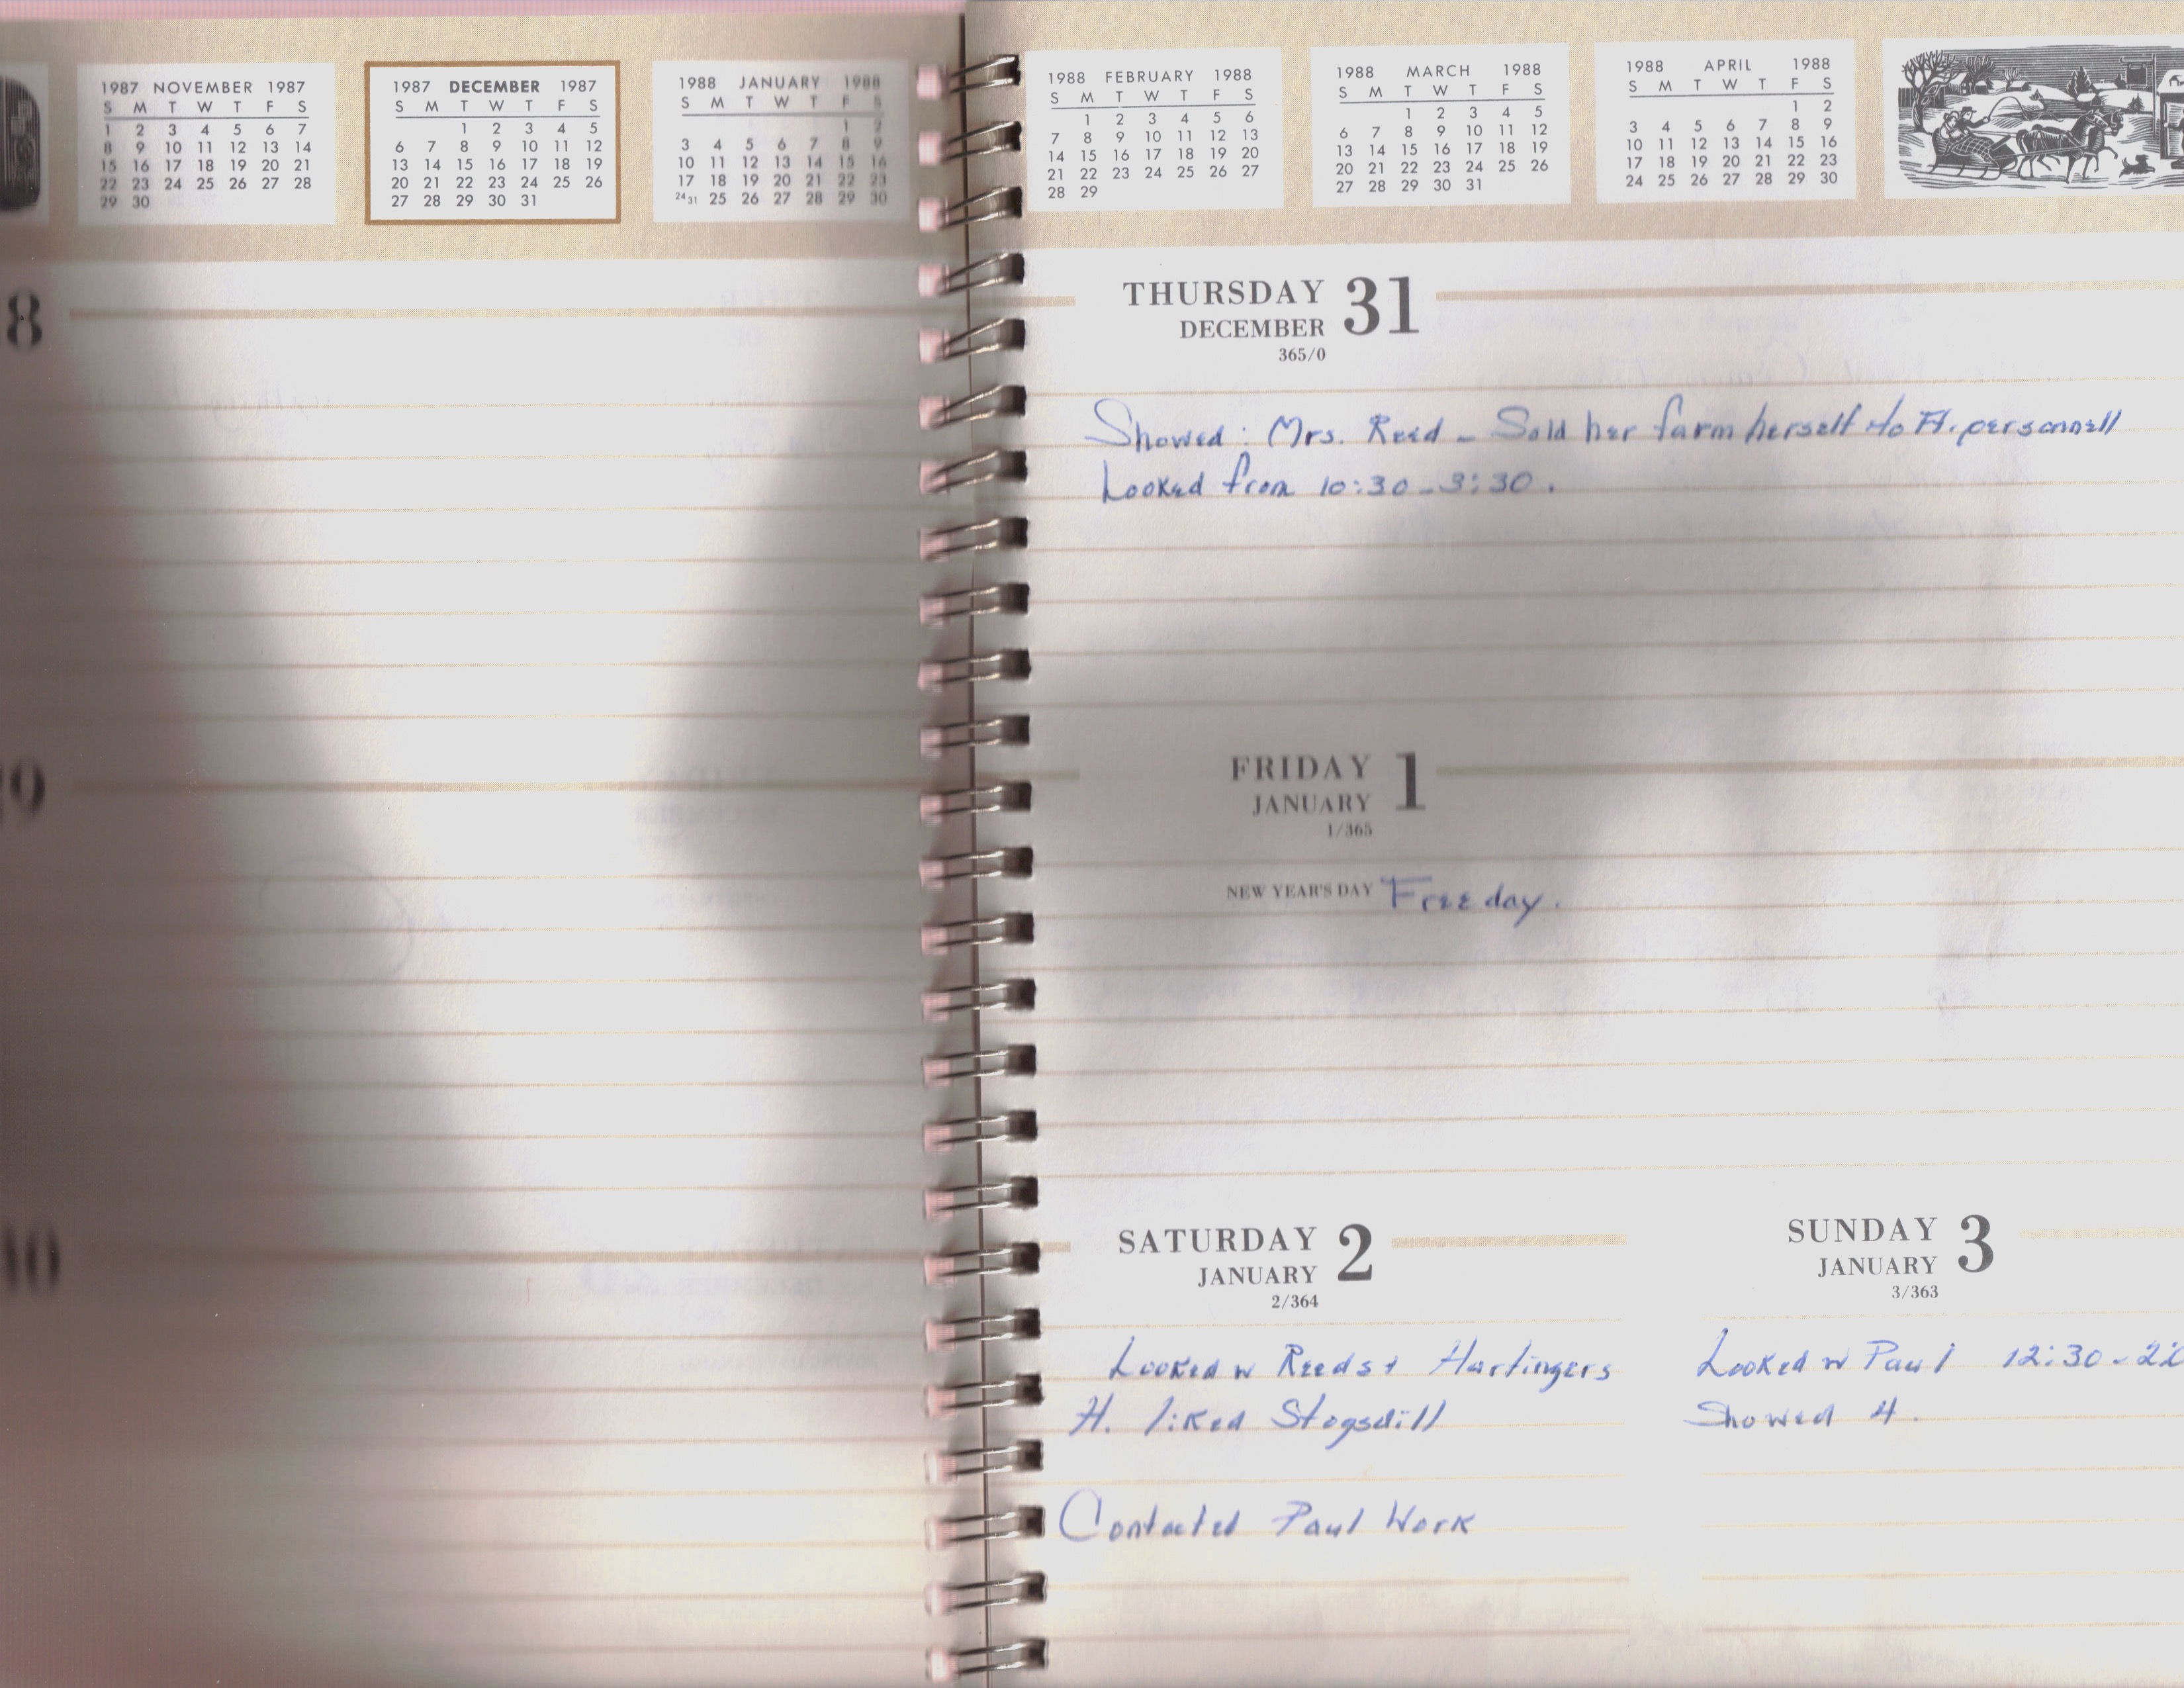 1987 NOVEMBER 1987
S M T W T F S
1 2 3 4 5 6 7
8 9 10 11 12 13 14
15 16 17 18 19 20 21
22 23 24 25 26 27 28
29 30
1987 DECEMBER 1987
S M T W T F S
1 2 3 4 5
6 7 8 9 10 11 12
13 14 15 16 17 18 19
20 21 22 23 24 25 26
27 28 29 30 31
1988 JANUARY 1988
S M T W T F S
1 2
3 4 5 6 7 8 9
10 11 12 13 14 15 16
17 18 19 20 21 22 23
24 31 25 26 27 28 29 30
1988 FEBRUARY 1988
S M T W T F S
1 2 3 4 5 6
7 8 9 10 11 12 13
14 15 16 17 18 19 20
21 22 23 24 25 26 27
28 29
1988 MARCH 1988
S M T W T F S
1 2 3 4 5
6 7 8 9 10 11 12
13 14 15 16 17 18 19
20 21 22 23 24 25 26
27 28 29 30 31
1988 APRIL 1988
S M T W T F S
1 2
3 4 5 6 7 8 9
10 11 12 13 14 15 16
17 18 19 20 21 22 23
24 25 26 27 28 29 30
8
9
30
THURSDAY 31
DECEMBER
365/0
Showed: Mrs. Reed - Sold her farm herself to Ft. personnell
Looked from 10:30-3:30.
FRIDAY 1
JANUARY
1/365
NEW YEAR'S DAY Free day.
SATURDAY 2
JANUARY
2/364
Looked w Reeds + Hartingers
H. liked Stogsdill
Contacted Paul Work
SUNDAY 3
JANUARY
3/363
Looked w Paul 12:30-2:0
Showed 4.